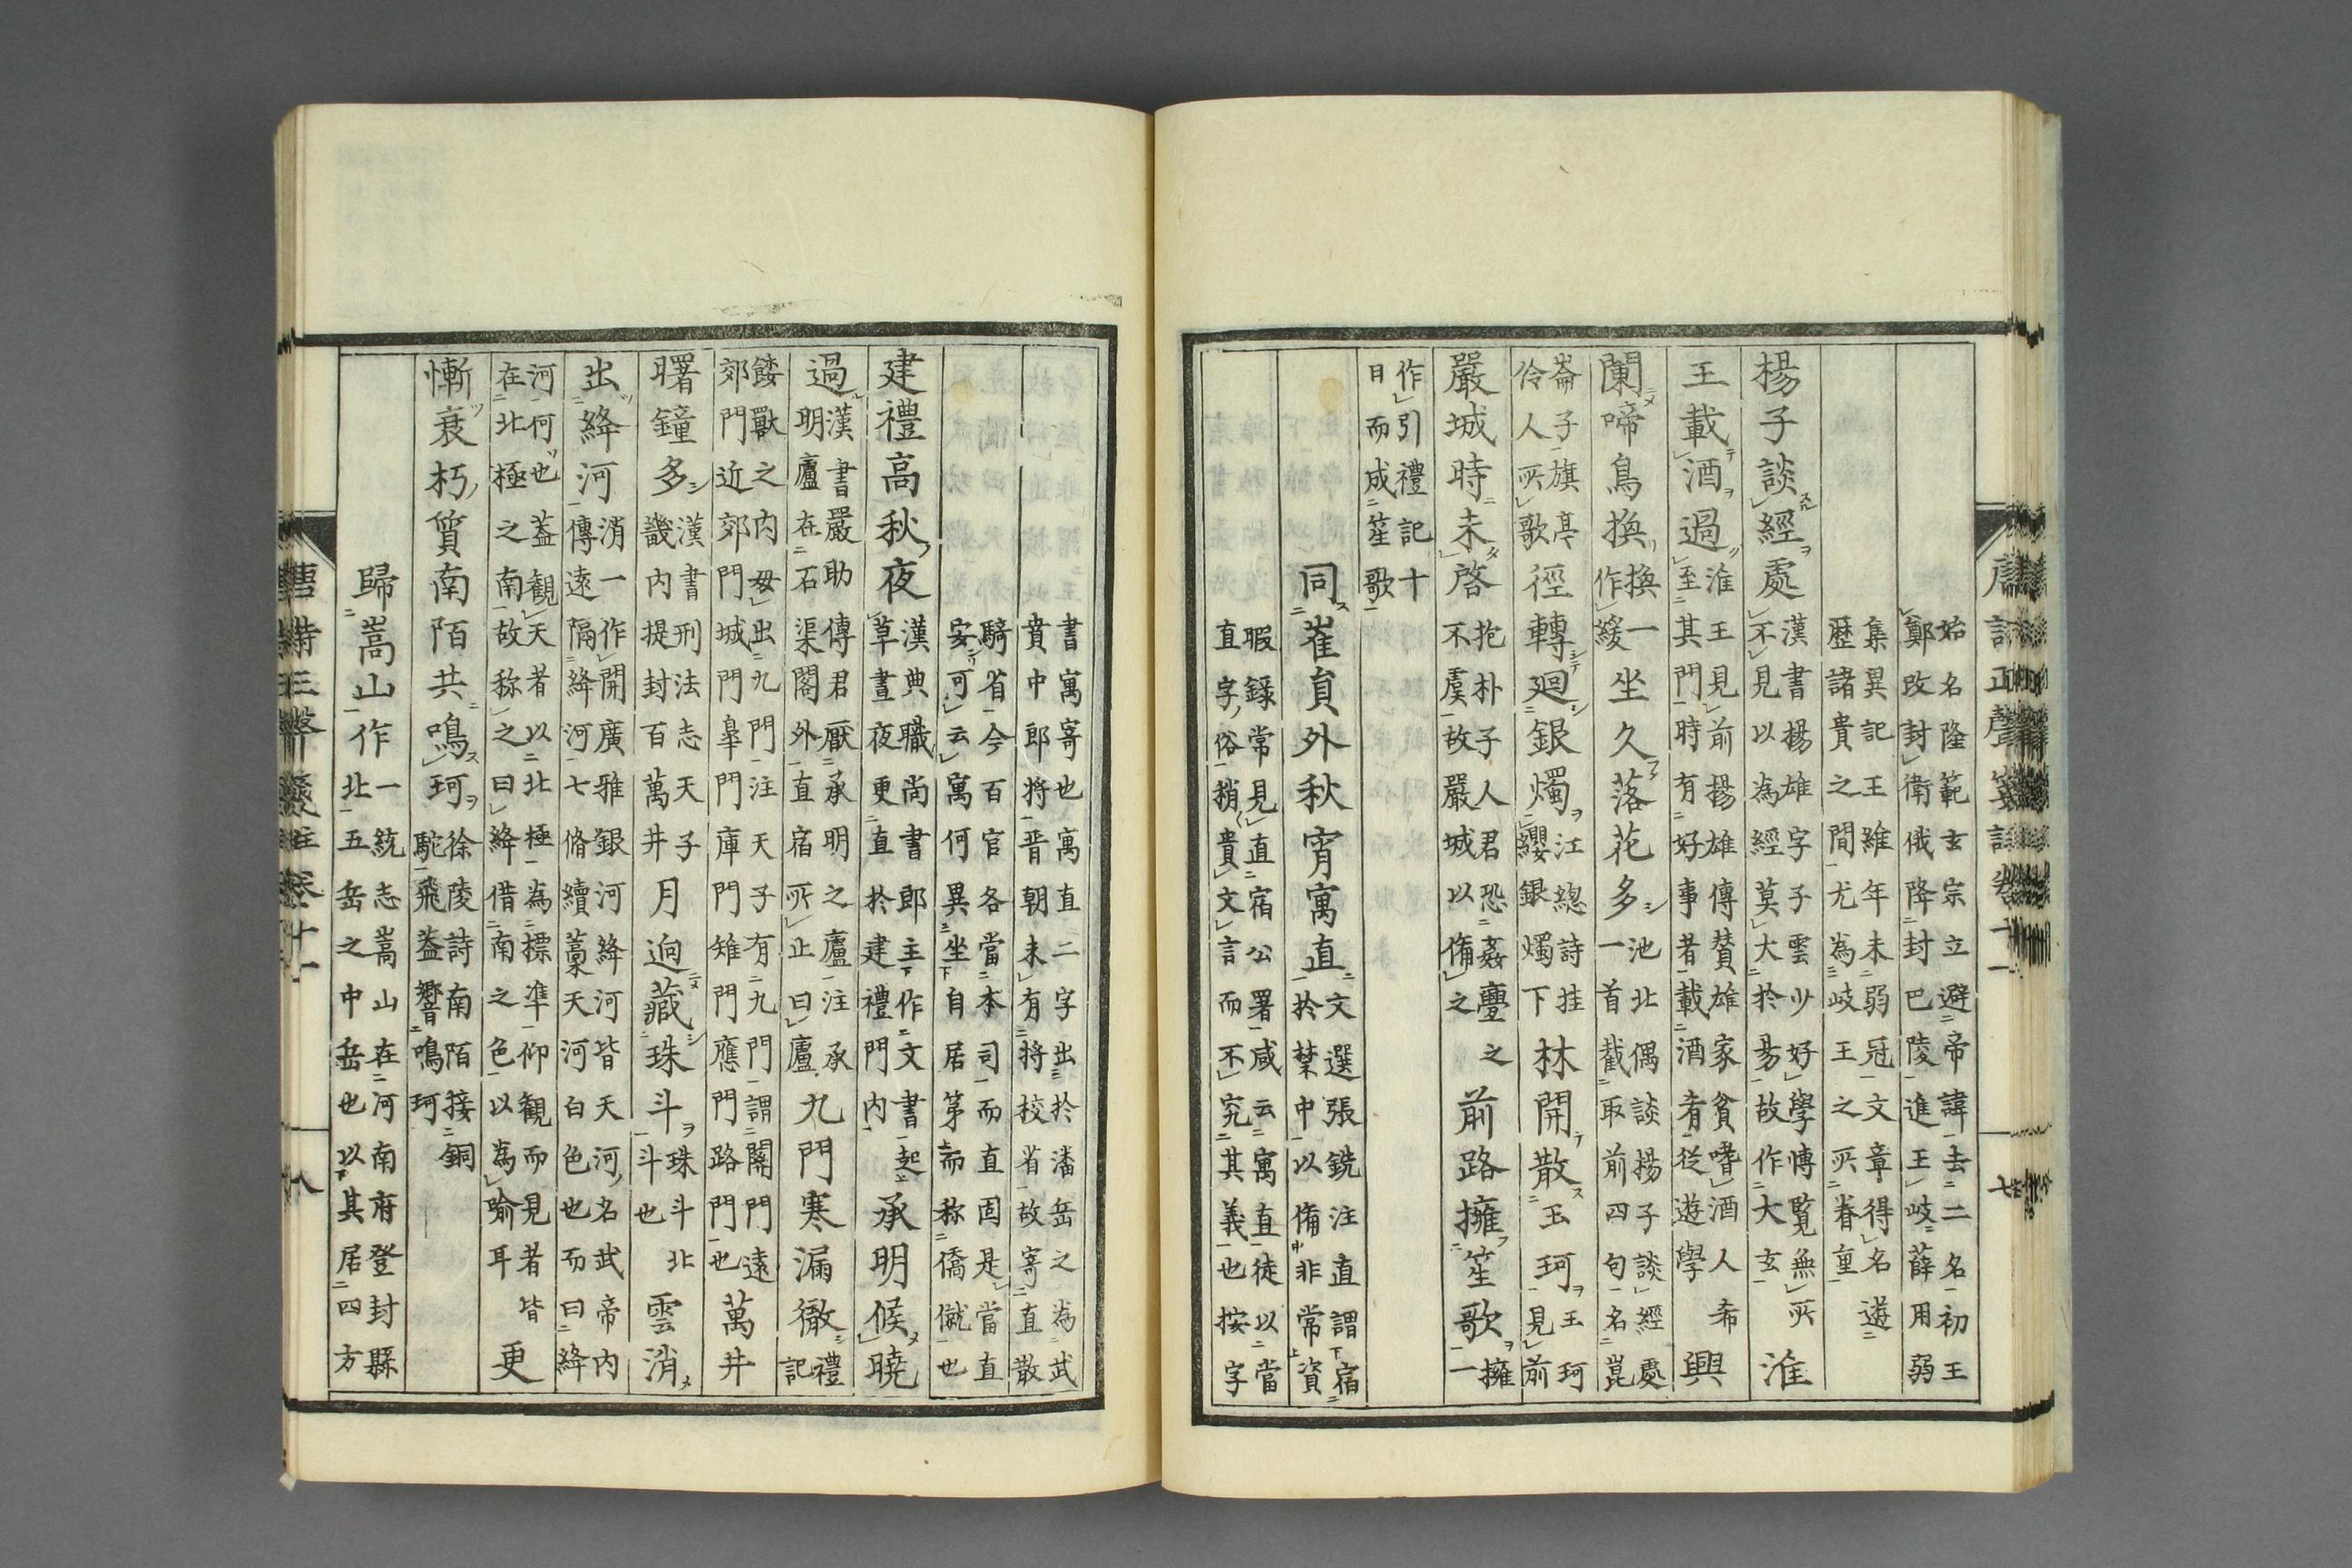 唐詩正聲箋註卷十一 七
始名隆範玄宗立避帝諱去二名初王
鄭改封衛俄降封巴陵王進王岐薛用弱
集異記王維年未弱冠文章得名遊
歷諸貴之間尤為岐王之所眷重
楊子談經處漢書揚雄字子雲少好學博覧無所不見以為經莫大於易故作大玄淮
王載酒過淮王見前揚雄傳賛雄家貧嗜酒人希至其門時有好事者載酒肴從遊學興
闌啼鳥換換一作緩坐久落花多池北偶談揚子談經處一首截取前四句名崑
崙子旗亭伶人所歌徑轉廻銀燭江總詩挂纓銀燭下林開散玉珂王珂見前
嚴城時未啓抱朴子人君恐姦亹之不虞故嚴城以備之前路擁笙歌擁一
作引禮記十日而成笙歌
同崔員外秋宵寓直文選張銑注直謂宿於禁中以備非常資
暇録常見直宿公署咸云寓直徒以當
直字俗稍貴文言而不究其義也按字
書寓寄也寓直二字出於潘岳之為武
賁中郎將晋朝未有將校省故寄直散
騎省今百官各當本司而直固是當直
安可云寓何異坐自居第而称僑僦也
建禮高秋夜漢典職尚書郎主作文書起草晝夜更直於建禮門內承明候曉
過漢書嚴助傳君厭承明之廬注承明廬在石渠閣外直宿所止曰廬九門寒漏徹禮記
餧獸之內毋出九門注天子有九門謂關門遠郊門近郊門城門皐門庫門雉門應門路門也萬井
曙鐘多漢書刑法志天子畿內提封百萬井月迥藏珠斗珠斗北斗也雲消
出絳河消一作開廣雅銀河絳河皆天河名武帝內傳遠隔絳河七脩續藁天河白色也而曰絳
河何也蓋觀天者以北極為標準仰觀而見者皆在北極之南故称之曰絳借南之色以為喻耳更
慚衰朽質南陌共鳴珂徐陵詩南陌接銅駝飛蓋響鳴珂
歸嵩山作一統志嵩山在河南府登封縣北五岳之中岳也以其居四方
唐詩正聲箋註卷十一 八